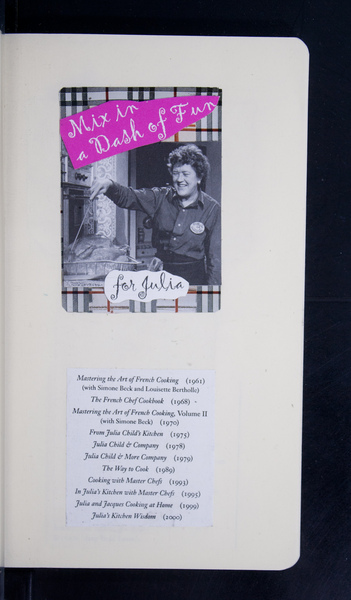 Mix in
a Dash of Fun
for Julia
Mastering the Art of French Cooking (1961)
(with Simone Beck and Louisette Bertholle)
The French Chef Cookbook (1968)
Mastering the Art of French Cooking, Volume II
(with Simone Beck) (1970)
From Julia Child's Kitchen (1975)
Julia Child & Company (1978)
Julia Child & More Company (1979)
The Way to Cook (1989)
Cooking with Master Chefs (1993)
In Julia's Kitchen with Master Chefs (1995)
Julia and Jacques Cooking at Home (1999)
Julia's Kitchen Wisdom (2000)